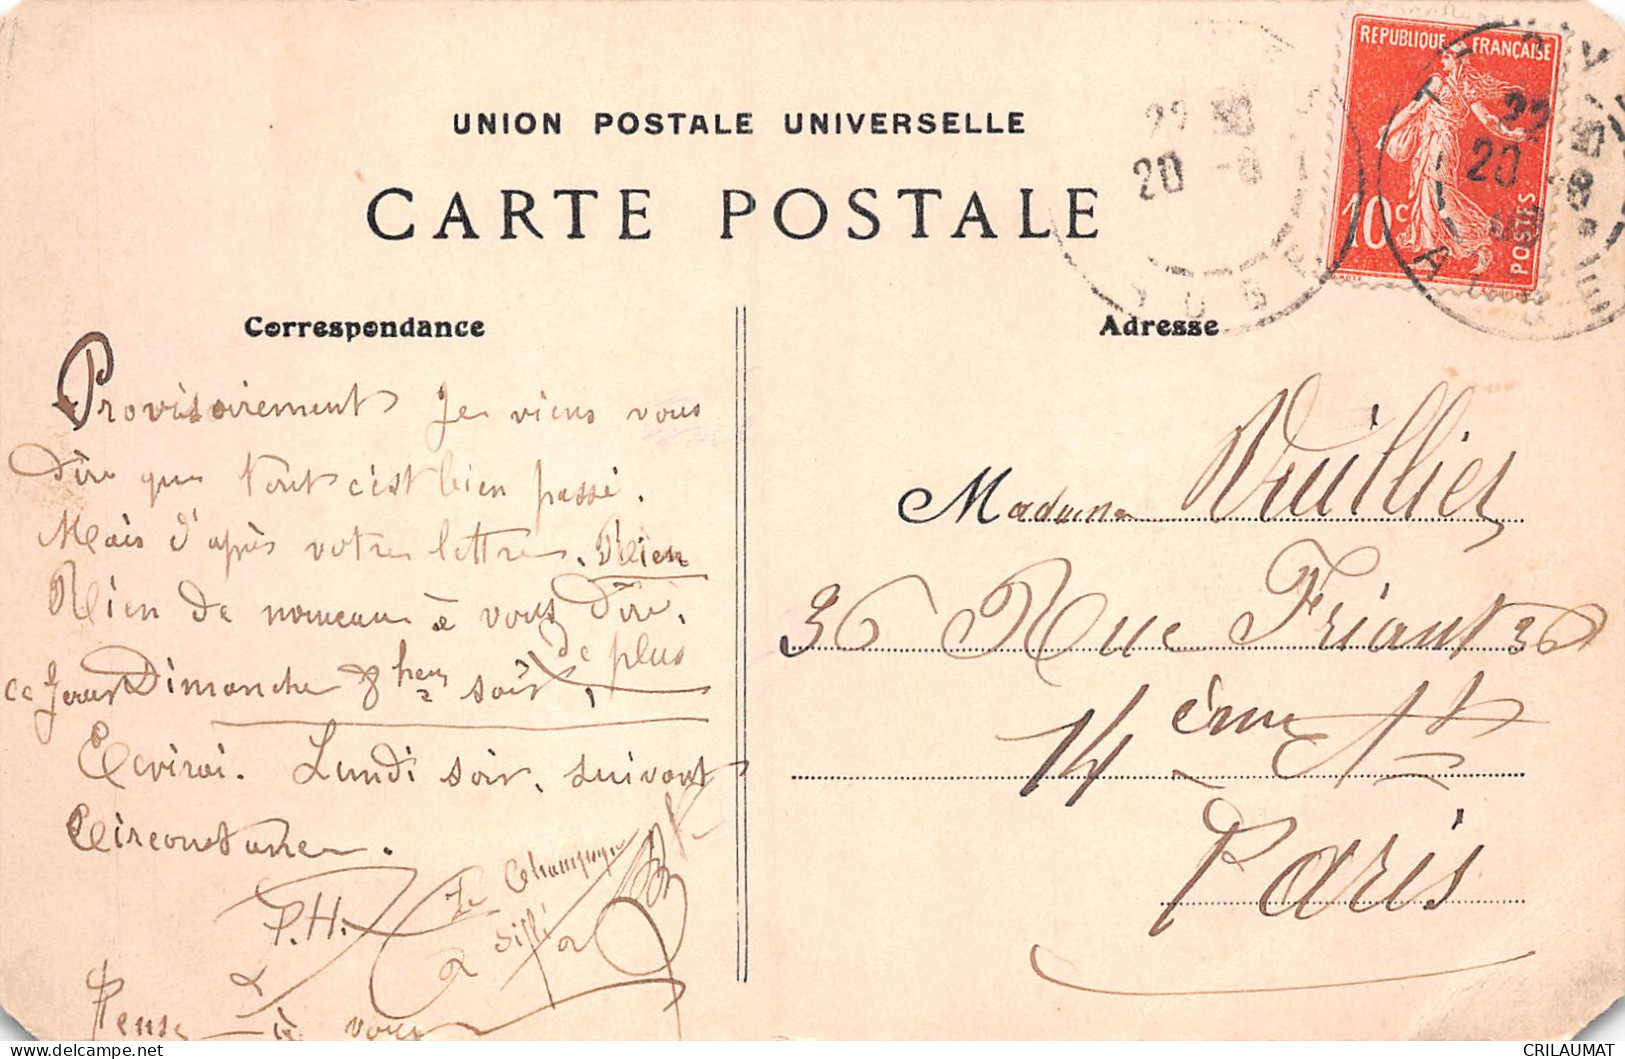 UNION POSTALE UNIVERSELLE
CARTE POSTALE
REPUBLIQUE FRANÇAISE
10 c
POSTES
22 30
20 -8
22 30
20 -8
09
Correspondance
Adresse
Provisoirement Je viens vous
dire que tout c'est bien passé.
Mais d'après votre lettre. Rien
Rien de nouveau à vous dire.
de plus
ce jour Dimanche 8 heures soir,
Ecrirai. Lundi soir, suivant
Circonstance.
P.H.
Le Champagne
a sifflé
Pense à vous
Madame Vuillier
36 Rue Friant 36
14 ème Art
Paris
CRILAUMAT